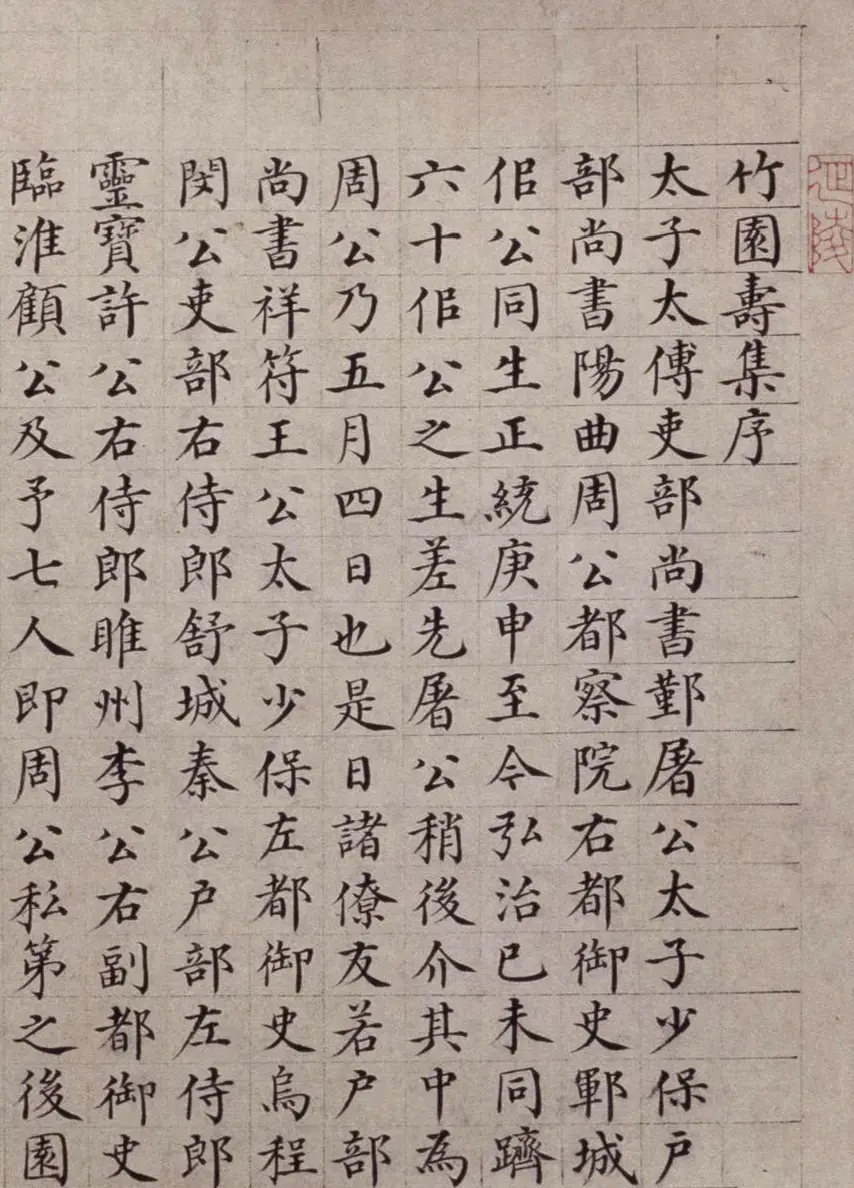 竹園壽集序
太子太傅吏部尚書鄞屠公太子少保戶
部尚書陽曲周公都察院右都御史鄆城
佀公同生正統庚申至今弘治己未同躋
六十佀公之生差先屠公稍後介其中為
周公乃五月四日也是日諸僚友若戶部
尚書祥符王公太子少保左都御史烏程
閔公吏部右侍郎舒城秦公戶部左侍郎
靈寶許公右侍郎睢州李公右副都御史
臨淮顧公及予七人即周公私第之後園